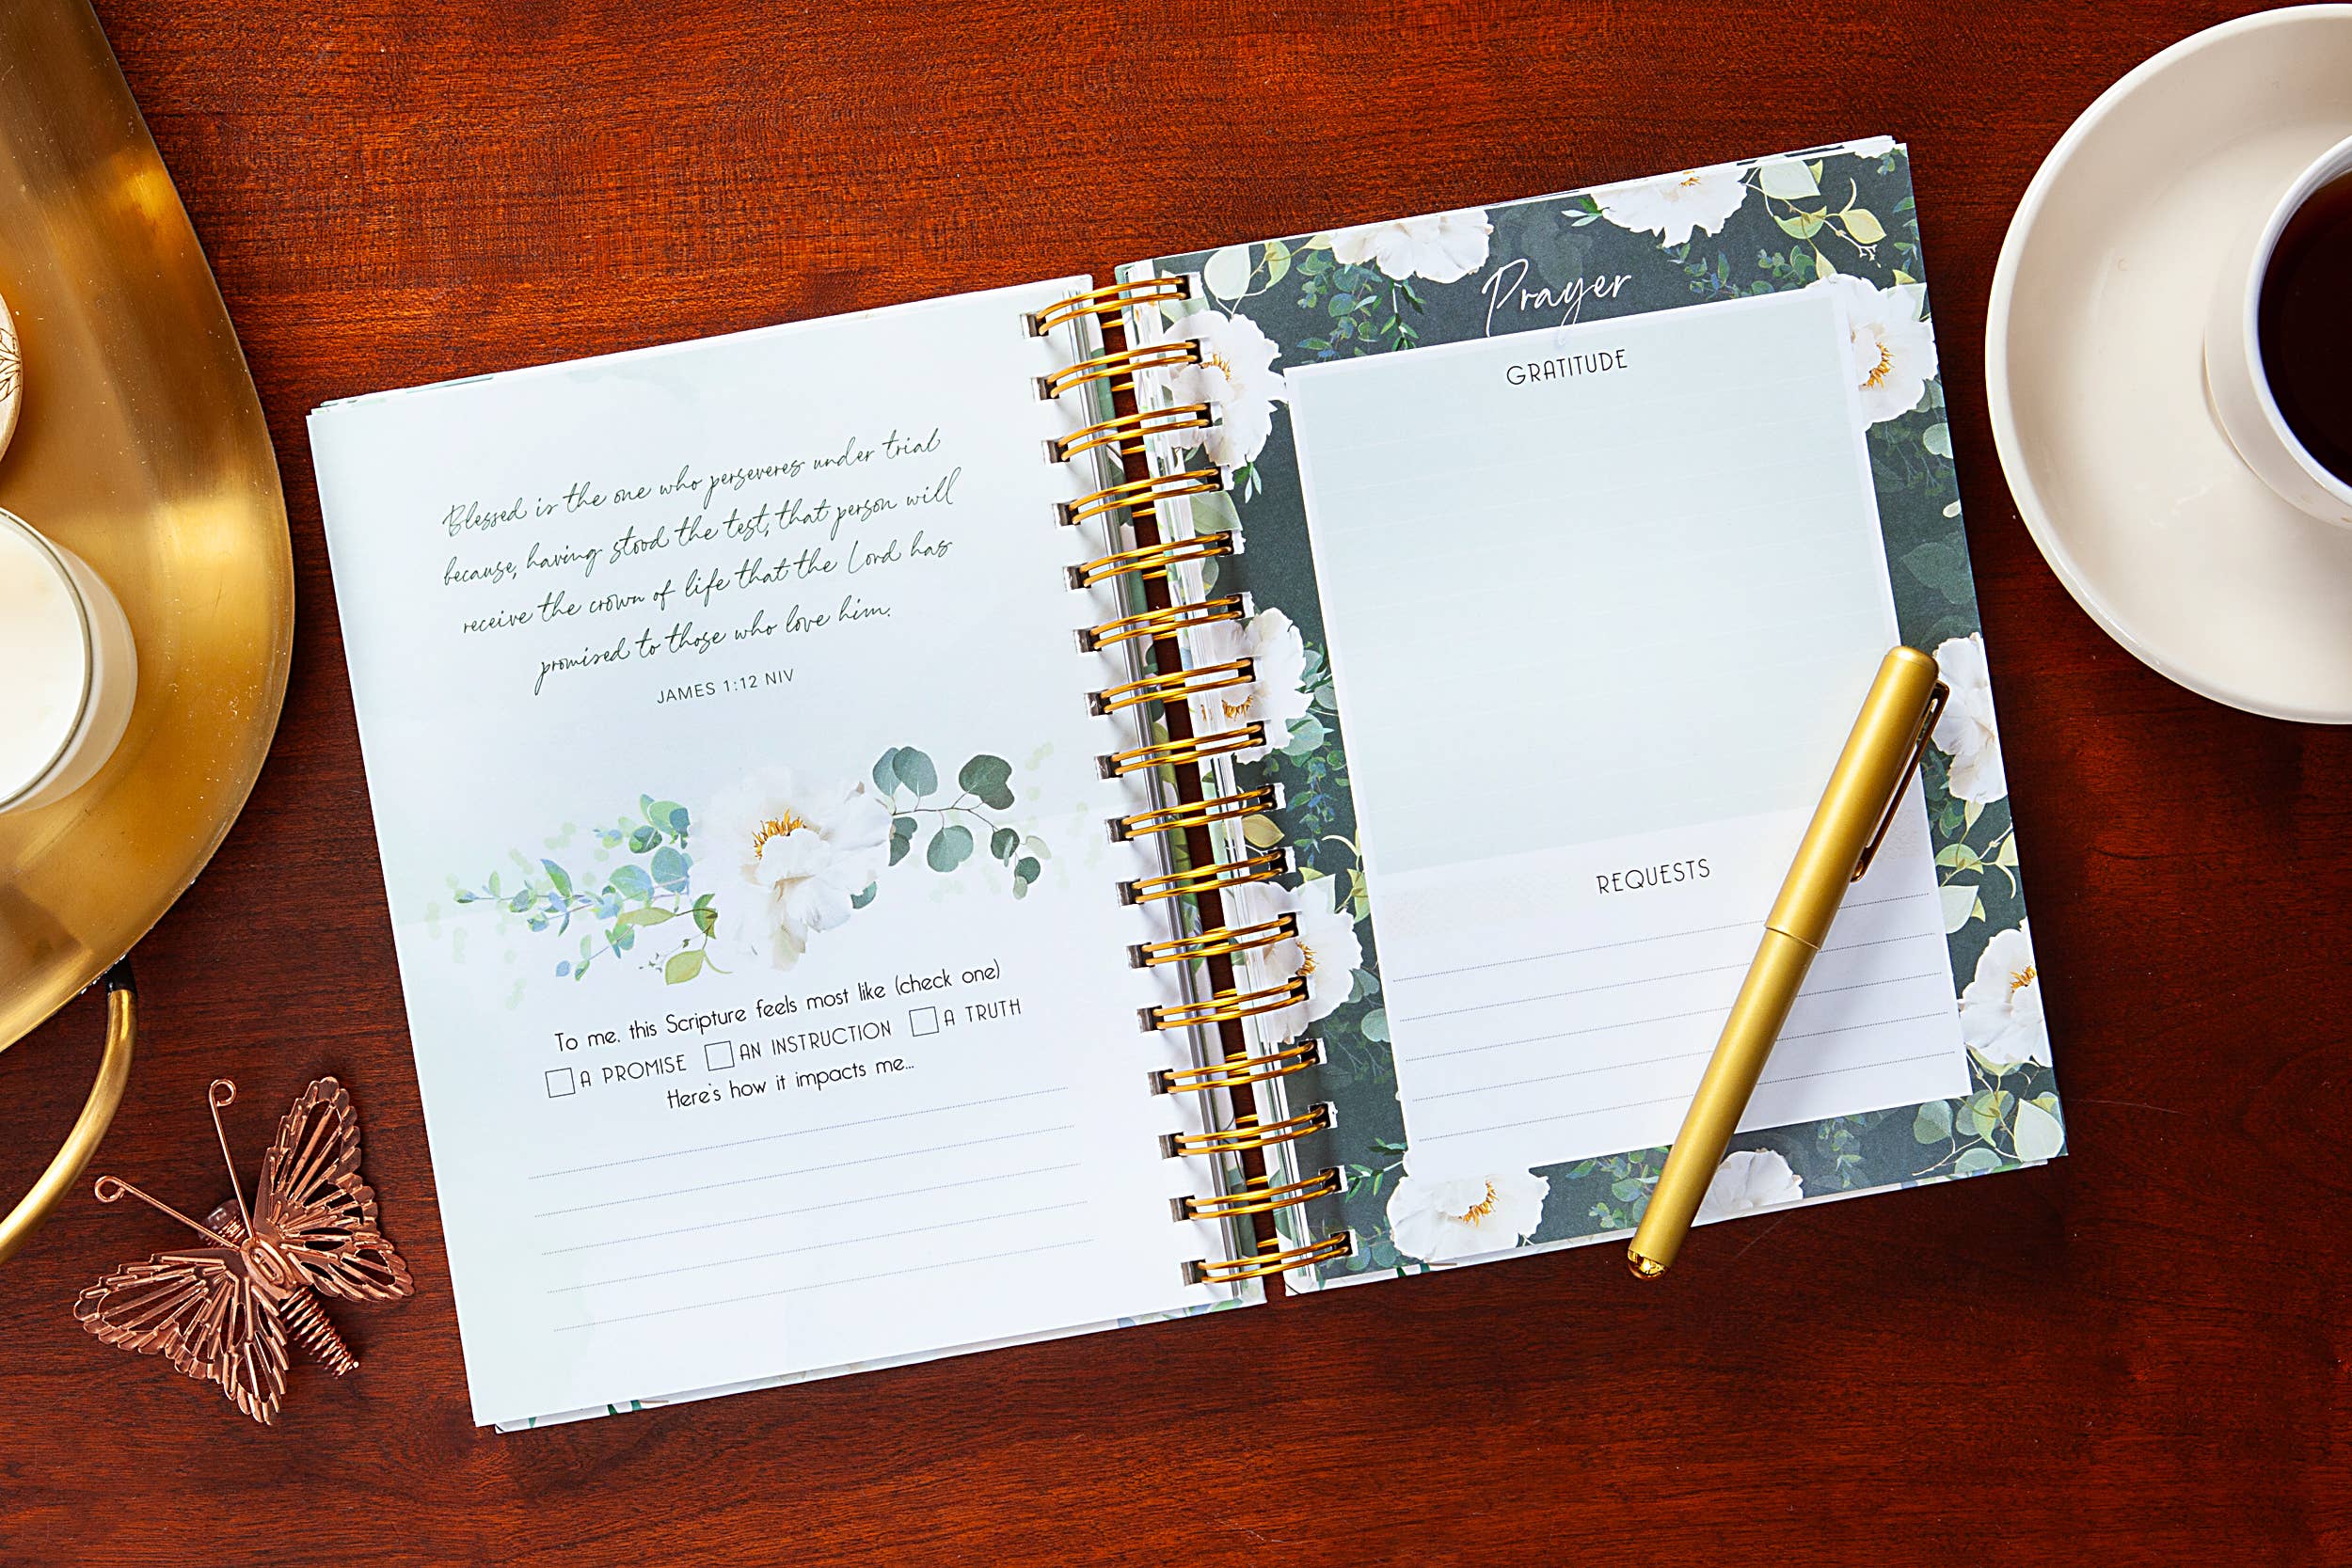 Blessed is the one who perseveres under trial
because, having stood the test, that person will
receive the crown of life that the Lord has
promised to those who love him.
JAMES 1:12 NIV
To me, this Scripture feels most like (check one)
A PROMISE AN INSTRUCTION A TRUTH
Here's how it impacts me...
Prayer
GRATITUDE
REQUESTS